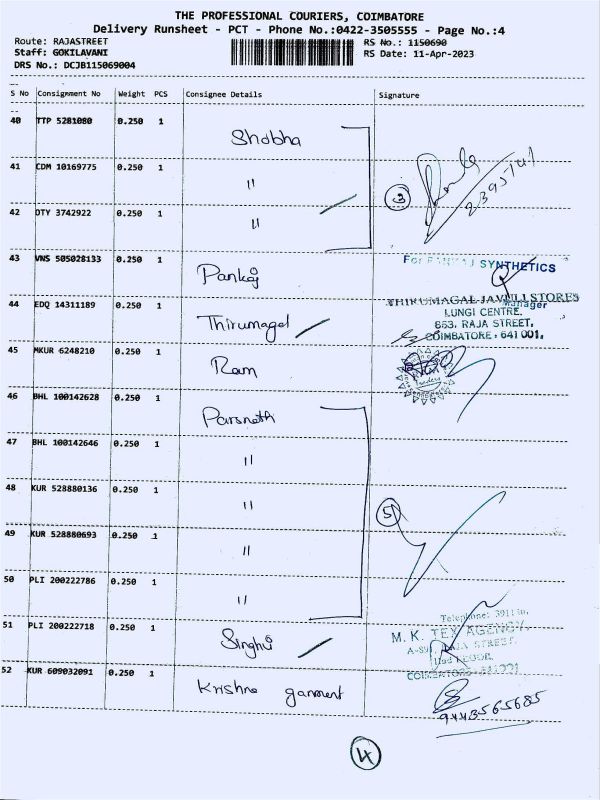 THE PROFESSIONAL COURIERS, COIMBATORE
Delivery Runsheet - PCT - Phone No.:0422-3505555 - Page No.:4
Route: RAJASTREET
RS No.: 1150690
Staff: GOKILAVANI
RS Date: 11-Apr-2023
DRS No.: DCJB115069004
S No Consignment No Weight PCS Consignee Details Signature
40 TTP 5281080 0.250 1 Shobha
41 CDM 10169775 0.250 1 "
3
42 DTY 3742922 0.250 1 "
43 VNS 505028133 0.250 1 Pankaj
For PANKAJ SYNTHETICS
Manager
44 EDQ 14311189 0.250 1 Thirumagal
THIRUMAGAL JAVULI STORES
LUNGI CENTRE.
863, RAJA STREET,
COIMBATORE - 641 001.
45 MKUR 6248210 0.250 1 Ram
46 BHL 100142628 0.250 1 Parsnath
47 BHL 100142646 0.250 1 "
48 KUR 528880136 0.250 1 "
5
49 KUR 528880693 0.250 1 "
50 PLI 200222786 0.250 1 "
51 PLI 200222718 0.250 1 Singhvi
M. K. TEX AGENCY
RAJA STREET
COIMBATORE - 641001
52 KUR 609032091 0.250 1 Krishna garment
9443565685
4